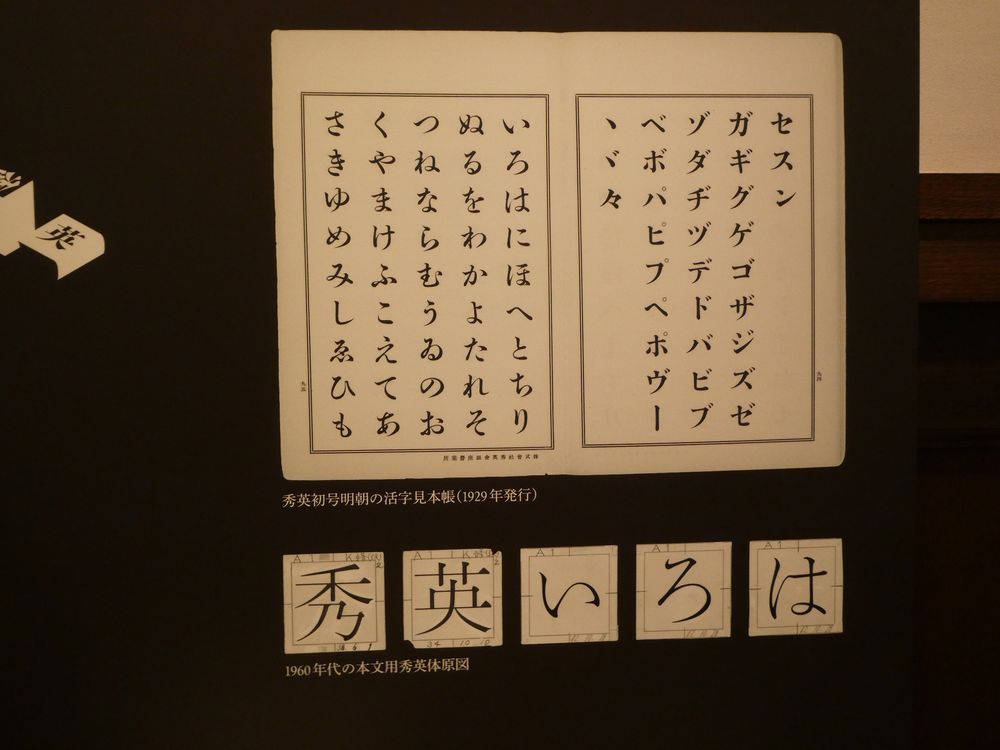 セスン
ガギグゲゴザジズゼ
ゾダヂヅデドバビブ
ベボパピプペポヴー
ヽヾ々
九四
いろはにほへとちり
ぬるをわかよたれそ
つねならむうゐのお
くやまけふこえてあ
さきゆめみしゑひも
九五
株式會社秀英舍銀座營業所
秀英初号明朝の活字見本帳（1929年発行）
英
A1 K
秀
A1 K
英
34 10 10
A1
い
A1
ろ
A1
は
1960年代の本文用秀英体原図